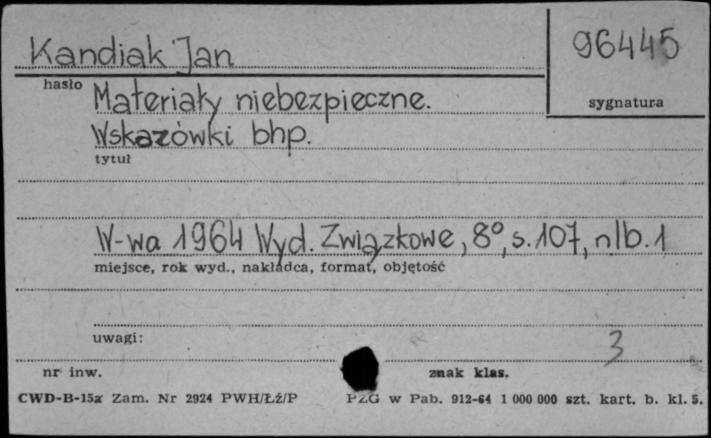 Kandiak Jan
96445
hasło
sygnatura
Materiały niebezpieczne.
Wskazówki bhp.
tytuł
W-wa 1964 Wyd. Związkowe, 8°, s. 107, nlb. 1
miejsce, rok wyd., nakładca, format, objętość
uwagi:
3
nr inw.
znak klas.
CWD-B-15a Zam. Nr 2924 PWH/Łź/P PZG w Pab. 912-64 1 000 000 szt. kart. b. kl. 5.